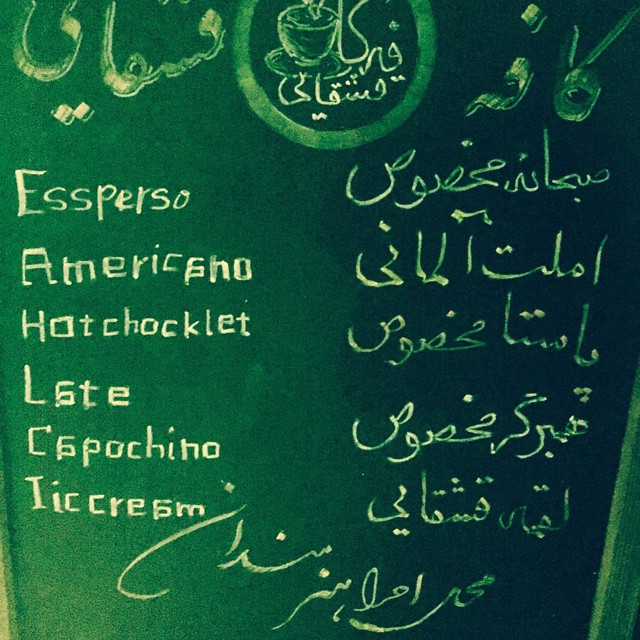 کافه
قشقایی
کافه
قشقایی
Essperso
Americano
Hotchocklet
Late
Capochino
Iiccream
صبحانه مخصوص
املت آلمانی
پاستا مخصوص
همبرگر مخصوص
قشقایی
محل اجرا هنرمندان